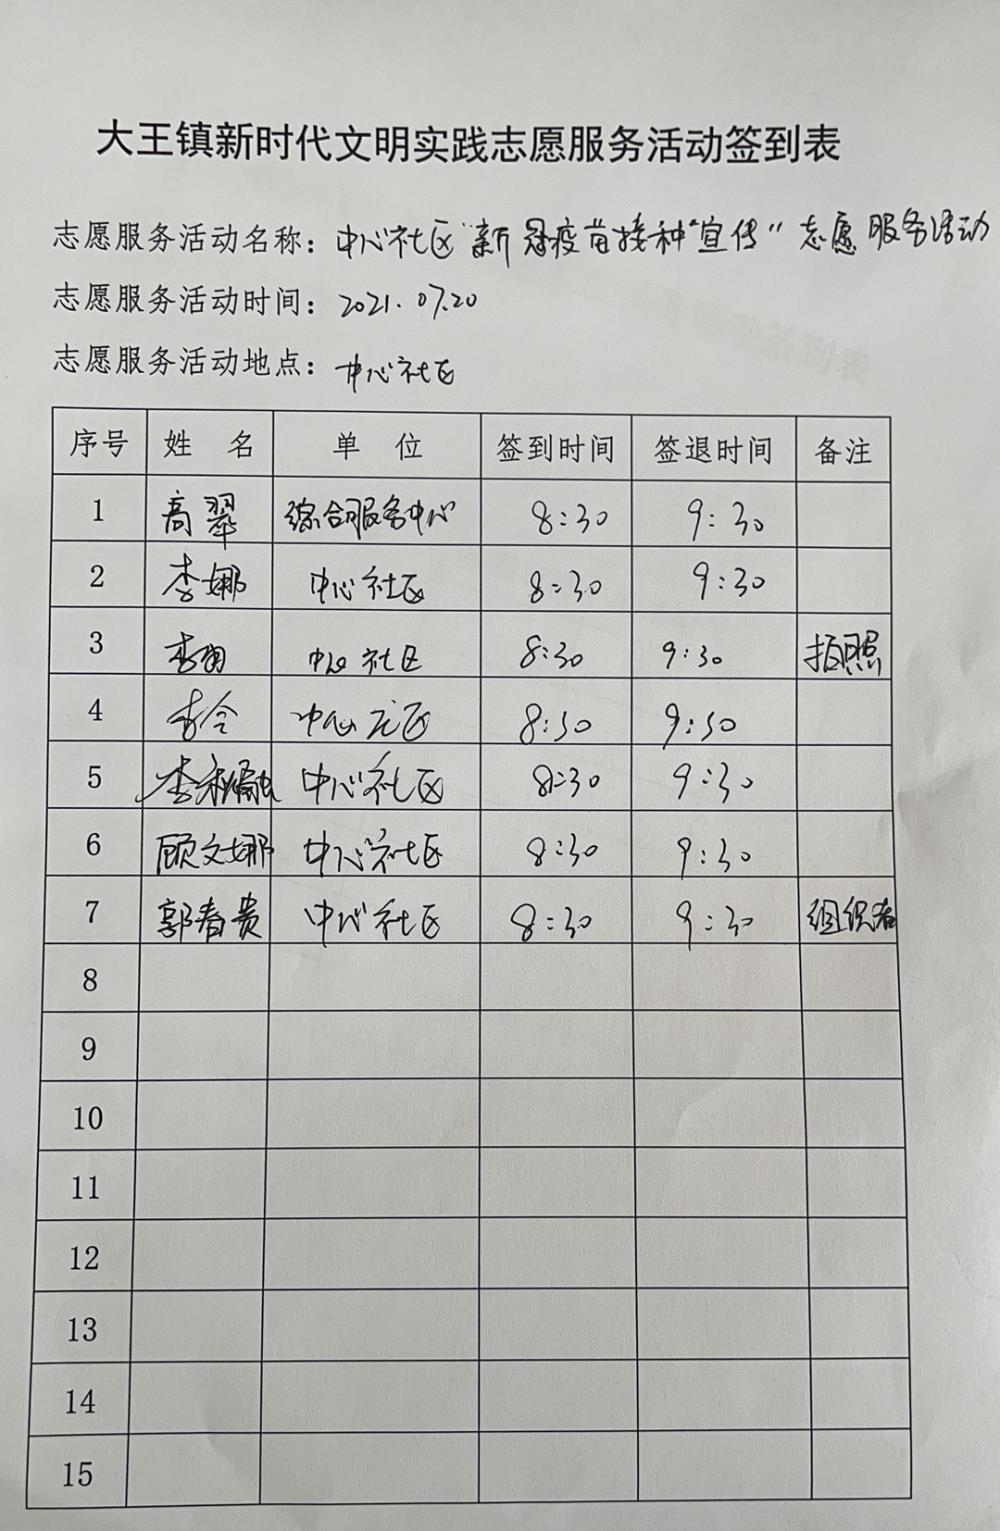 大王镇新时代文明实践志愿服务活动签到表
志愿服务活动名称：中心社区“新冠疫苗接种宣传”志愿服务活动
志愿服务活动时间：2021.07.20
志愿服务活动地点：中心社区
序号 姓 名 单 位 签到时间 签退时间 备注
1 高翠 综合服务中心 8:30 9:30
2 李娜 中心社区 8:30 9:30
3 李 中心社区 8:30 9:30 拍照
4 李令 中心社区 8:30 9:30
5 李 中心社区 8:30 9:30
6 顾文娜 中心社区 8:30 9:30
7 郭春贵 中心社区 8:30 9:30 组织者
8
9
10
11
12
13
14
15